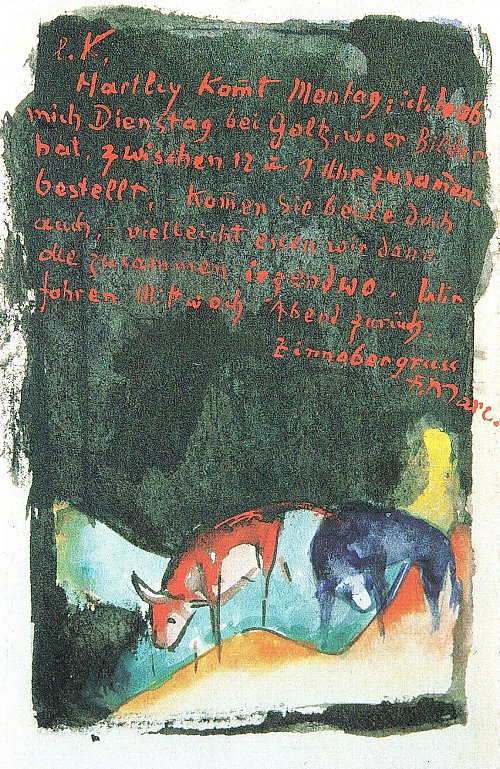 l. K,
Hartley kom̄t Montag; ich hab
mich Dienstag bei Goltz, wo er Bilder
hat, zwischen 12 u. 1 Uhr zusam̄en-
bestellt, – Kom̄en Sie beide doch
auch, – vielleicht essen wir dann
alle zusammen irgendwo. Wir
fahren Mittwoch Abend zurück.
Zinnobergruss
Fz Marc.